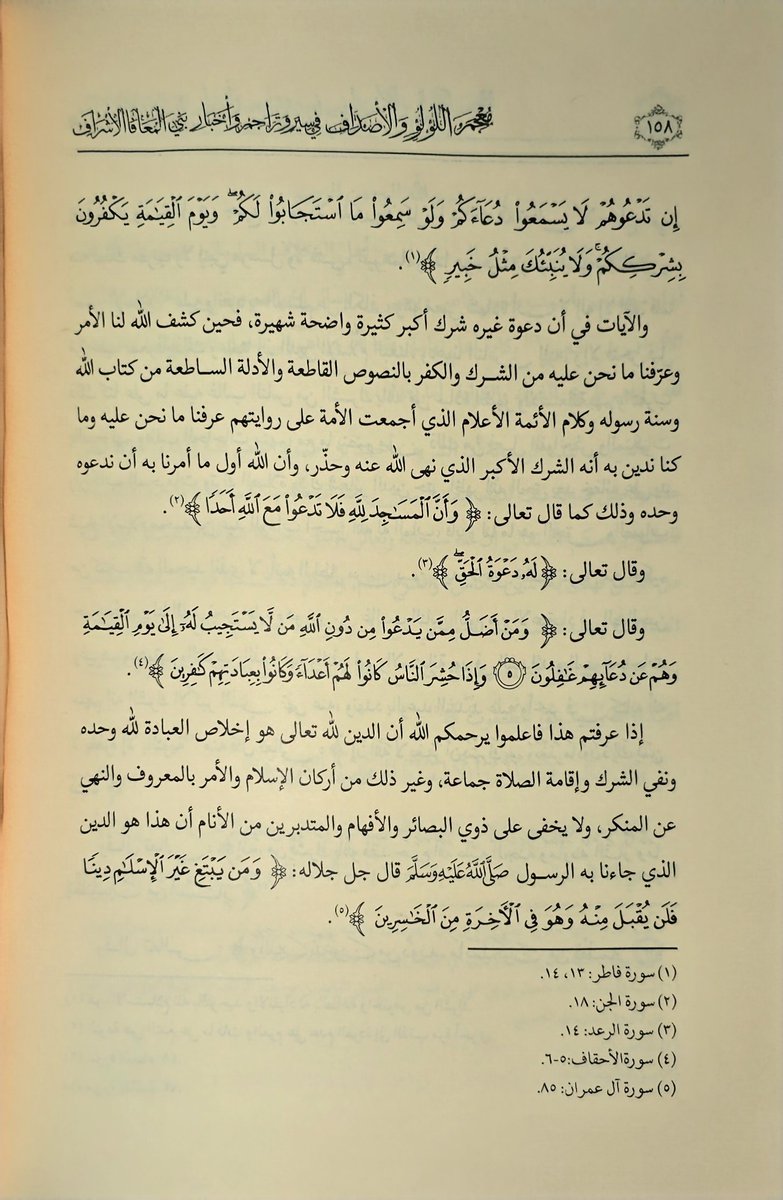 ١٥٨
معجم اللؤلؤ والأصداف في سير وتراجم وأخبار بني النعمي الأشراف
إِن تَدْعُوهُمْ لَا يَسْمَعُوا۟ دُعَآءَكُمْ وَلَوْ سَمِعُوا۟ مَا ٱسْتَجَابُوا۟ لَكُمْ ۖ وَيَوْمَ ٱلْقِيَٰمَةِ يَكْفُرُونَ
بِشِرْكِكُمْ ۚ وَلَا يُنَبِّئُكَ مِثْلُ خَبِيرٍ ﴾(١).
والآيات في أن دعوة غيره شرك أكبر كثيرة واضحة شهيرة، فحين كشف الله لنا الأمر
وعرّفنا ما نحن عليه من الشرك والكفر بالنصوص القاطعة والأدلة الساطعة من كتاب الله
وسنة رسوله وكلام الأئمة الأعلام الذي أجمعت الأمة على روايتهم عرفنا ما نحن عليه وما
كنا ندين به أنه الشرك الأكبر الذي نهى الله عنه وحذّر، وأن الله أول ما أمرنا به أن ندعوه
وحده وذلك كما قال تعالى: ﴿ وَأَنَّ ٱلْمَسَٰجِدَ لِلَّهِ فَلَا تَدْعُوا۟ مَعَ ٱللَّهِ أَحَدًا ﴾(٢).
وقال تعالى: ﴿ لَهُۥ دَعْوَةُ ٱلْحَقِّ ۖ ﴾(٣).
وقال تعالى: ﴿ وَمَنْ أَضَلُّ مِمَّن يَدْعُوا۟ مِن دُونِ ٱللَّهِ مَن لَّا يَسْتَجِيبُ لَهُۥٓ إِلَىٰ يَوْمِ ٱلْقِيَٰمَةِ
وَهُمْ عَن دُعَآئِهِمْ غَٰفِلُونَ ۝٥ وَإِذَا حُشِرَ ٱلنَّاسُ كَانُوا۟ لَهُمْ أَعْدَآءً وَكَانُوا۟ بِعِبَادَتِهِمْ كَٰفِرِينَ ﴾(٤).
إذا عرفتم هذا فاعلموا يرحمكم الله أن الدين لله تعالى هو إخلاص العبادة لله وحده
ونفي الشرك وإقامة الصلاة جماعة، وغير ذلك من أركان الإسلام والأمر بالمعروف والنهي
عن المنكر، ولا يخفى على ذوي البصائر والأفهام والمتدبرين من الأنام أن هذا هو الدين
الذي جاءنا به الرسول صَلَّى ٱللَّهُ عَلَيْهِ وَسَلَّمَ قال جل جلاله: ﴿ وَمَن يَبْتَغِ غَيْرَ ٱلْإِسْلَٰمِ دِينًا
فَلَن يُقْبَلَ مِنْهُ وَهُوَ فِى ٱلْأَخِرَةِ مِنَ ٱلْخَٰسِرِينَ ﴾(٥).
(١) سورة فاطر: ١٣، ١٤.
(٢) سورة الجن: ١٨.
(٣) سورة الرعد: ١٤.
(٤) سورة الأحقاف: ٥-٦.
(٥) سورة آل عمران: ٨٥.